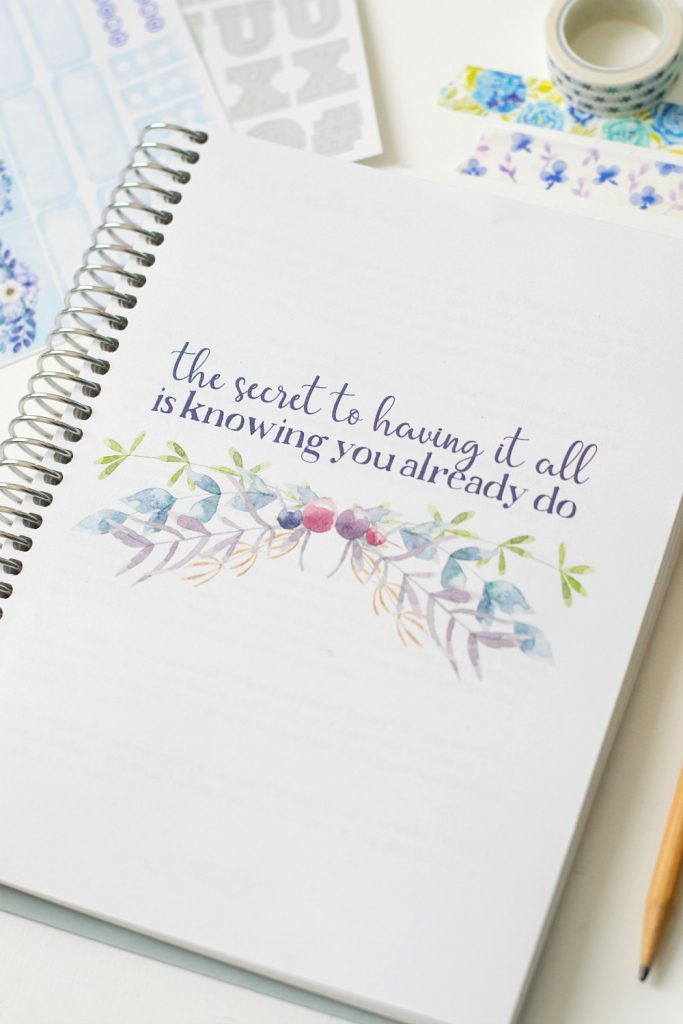 UX
X
#
the secret to having it all
is knowing you already do